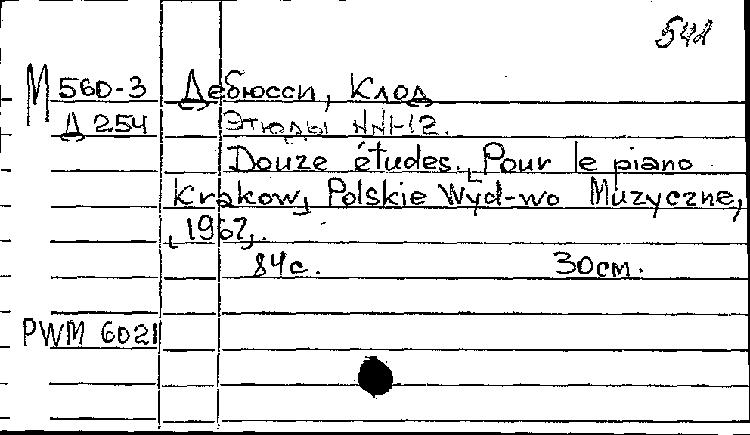 541
М 560-3 Дебюсси, Клод
Д 254 Этюды NN1-12.
Douze études. Pour le piano
Krakow, Polskie Wyd-wo Muzyczne,
[1967].
84с. 30см.
PWM 6021